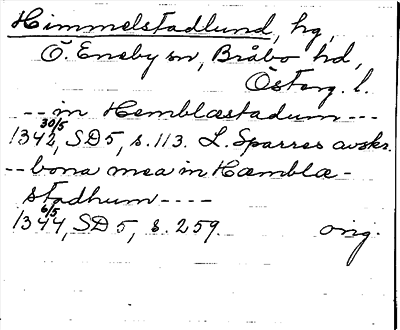 Himmelstadlund, hg,
Ö. Eneby sn, Bråbo hd,
Österg. l.
-- in Hemblæstadum ---
1342 30/5, SD 5, s. 113. L. Sparres avskr.
-- bona mea in Hæmblæ-
stadhum ----
1344 6/5, SD 5, s. 259. orig.